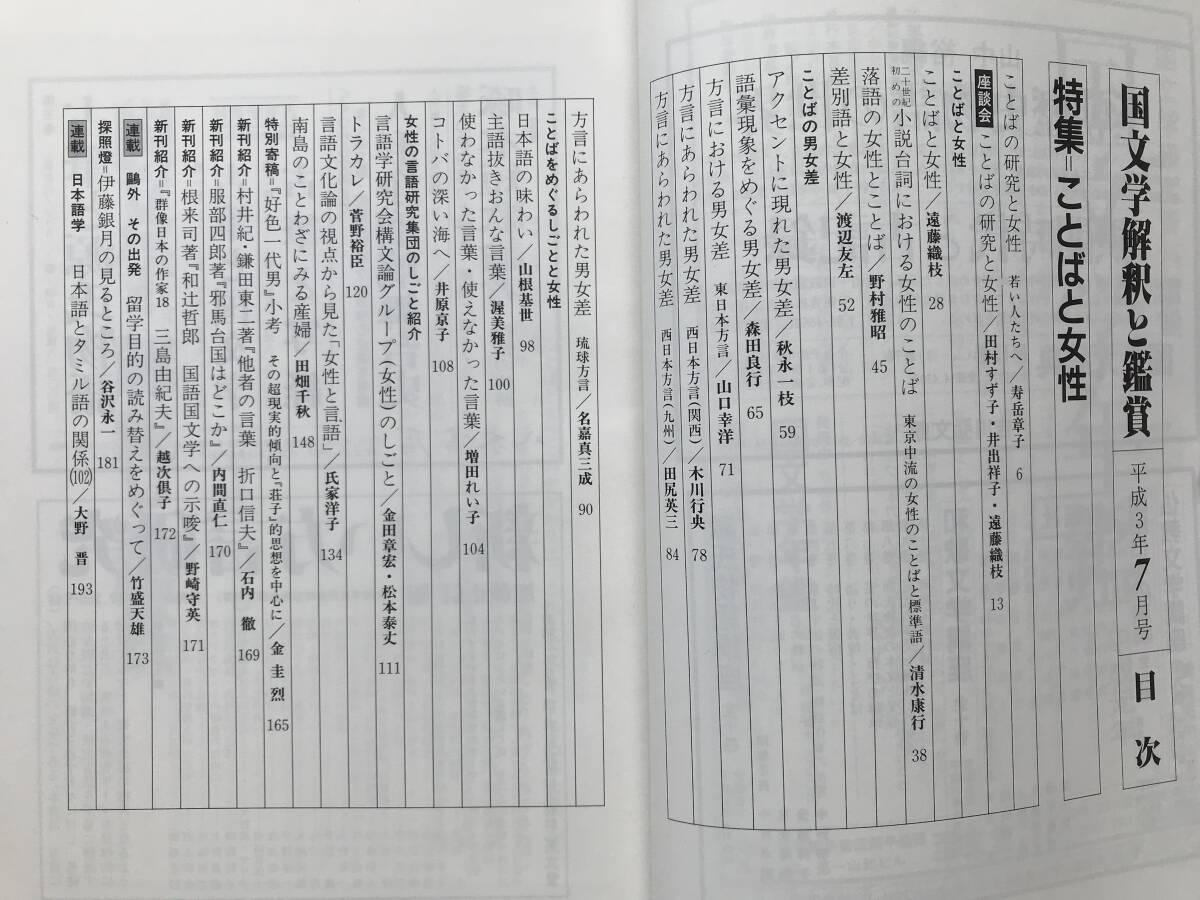 国文学解釈と鑑賞 平成3年7月号 目次
特集=ことばと女性
ことばの研究と女性 若い人たちへ/寿岳章子 6
座談会 ことばの研究と女性/田村すず子・井出祥子・遠藤織枝 13
ことばと女性
ことばと女性/遠藤織枝 28
二十世紀初めの小説台詞における女性のことば 東京中流の女性のことばと標準語/清水康行 38
落語の女性とことば/野村雅昭 45
差別語と女性/渡辺友左 52
ことばの男女差
アクセントに現れた男女差/秋永一枝 59
語彙現象をめぐる男女差/森田良行 65
方言における男女差 東日本方言/山口幸洋 71
方言にあらわれた男女差 西日本方言(関西)/木川行央 78
方言にあらわれた男女差 西日本方言(九州)/田尻英三 84
方言にあらわれた男女差 琉球方言/名嘉真三成 90
ことばをめぐるしごとと女性
日本語の味わい/山根基世 98
主語抜きおんな言葉/渥美雅子 100
使わなかった言葉・使えなかった言葉/増田れい子 104
コトバの深い海へ/井原京子 108
女性の言語研究集団のしごと紹介
言語学研究会構文論グループ(女性)のしごと/金田章宏・松本泰丈 111
トラカレ/菅野裕臣 120
言語文化論の視点から見た「女性と言語」/氏家洋子 134
南島のことわざにみる産婦/田畑千秋 148
特別寄稿=『好色一代男』小考 その超現実的傾向と『荘子』的思想を中心に/金圭烈 165
新刊紹介=村井紀・鎌田東二著『他者の言葉 折口信夫』/石内 徹 169
新刊紹介=服部四郎著『邪馬台国はどこか』/内間直仁 170
新刊紹介=根来司著『和辻哲郎 国語国文学への示唆』/野崎守英 171
新刊紹介=『群像日本の作家18 三島由紀夫』/越次倶子 172
連載 鷗外 その出発 留学目的の読み替えをめぐって/竹盛天雄 173
探照燈=伊藤銀月の見るところ/谷沢永一 181
連載 日本語学 日本語とタミル語の関係(102)/大野 晋 193